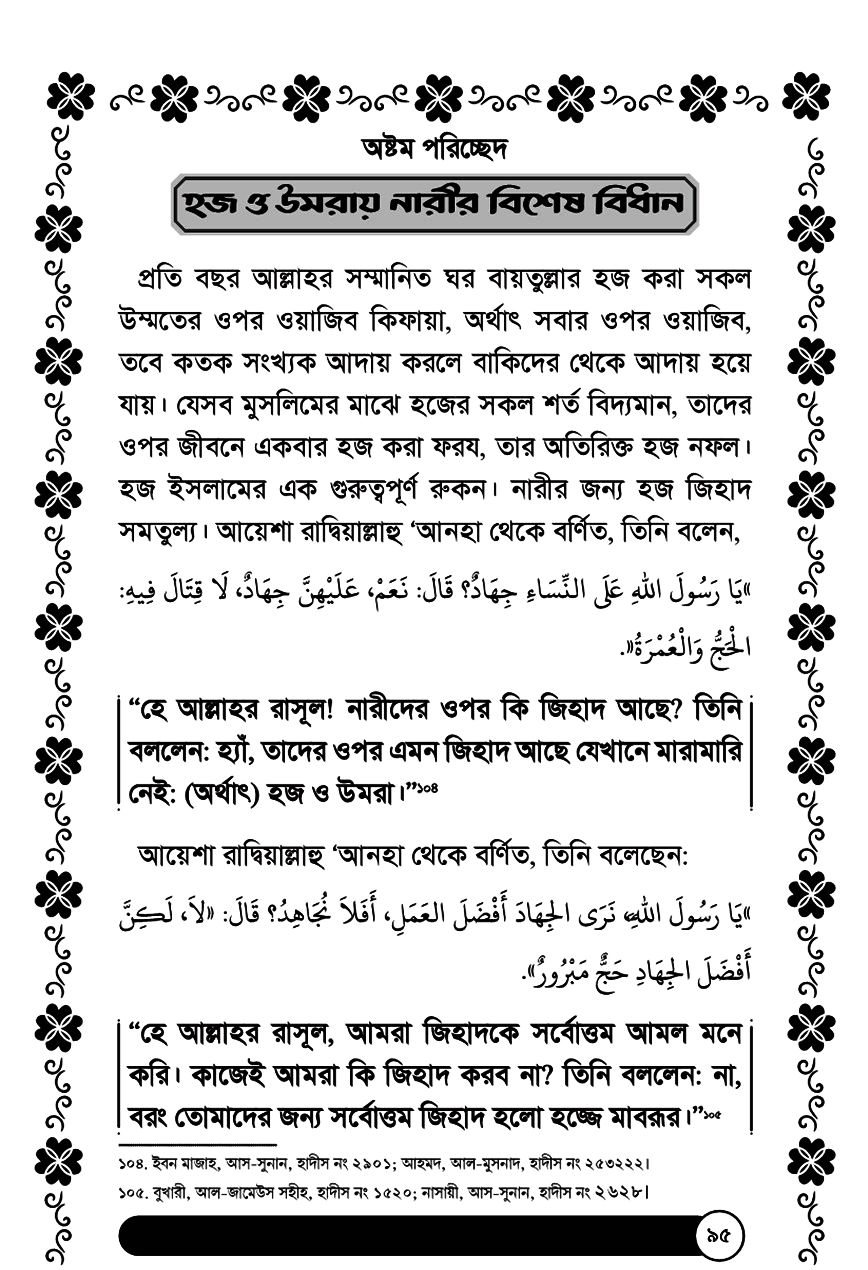 অষ্টম পরিচ্ছেদ
হজ ও উমরায় নারীর বিশেষ বিধান
প্রতি বছর আল্লাহর সম্মানিত ঘর বায়তুল্লার হজ করা সকল
উম্মতের ওপর ওয়াজিব কিফায়া, অর্থাৎ সবার ওপর ওয়াজিব,
তবে কতক সংখ্যক আদায় করলে বাকিদের থেকে আদায় হয়ে
যায়। যেসব মুসলিমের মাঝে হজের সকল শর্ত বিদ্যমান, তাদের
ওপর জীবনে একবার হজ করা ফরয, তার অতিরিক্ত হজ নফল।
হজ ইসলামের এক গুরুত্বপূর্ণ রুকন। নারীর জন্য হজ জিহাদ
সমতুল্য। আয়েশা রাদ্বিয়াল্লাহু ‘আনহা থেকে বর্ণিত, তিনি বলেন,
«يَا رَسُولَ اللهِ عَلَى النِّسَاءِ جِهَادٌ؟ قَالَ: نَعَمْ، عَلَيْهِنَّ جِهَادٌ، لَا قِتَالَ فِيهِ:
الْحَجُّ وَالْعُمْرَةُ».
“হে আল্লাহর রাসূল! নারীদের ওপর কি জিহাদ আছে? তিনি
বললেন: হ্যাঁ, তাদের ওপর এমন জিহাদ আছে যেখানে মারামারি
নেই: (অর্থাৎ) হজ ও উমরা।”১০৪
আয়েশা রাদ্বিয়াল্লাহু ‘আনহা থেকে বর্ণিত, তিনি বলেছেন:
«يَا رَسُولَ اللهِ، نَرَى الجِهَادَ أَفْضَلَ العَمَلِ، أَفَلاَ نُجَاهِدُ؟ قَالَ: «لاَ، لَكِنَّ
أَفْضَلَ الجِهَادِ حَجٌّ مَبْرُورٌ».
“হে আল্লাহর রাসূল, আমরা জিহাদকে সর্বোত্তম আমল মনে
করি। কাজেই আমরা কি জিহাদ করব না? তিনি বললেন: না,
বরং তোমাদের জন্য সর্বোত্তম জিহাদ হলো হজ্জে মাবরূর।”১০৫
১০৪. ইবন মাজাহ, আস-সুনান, হাদীস নং ২৯০১; আহমদ, আল-মুসনাদ, হাদীস নং ২৫৩২২২।
১০৫. বুখারী, আল-জামেউস সহীহ, হাদীস নং ১৫২০; নাসায়ী, আস-সুনান, হাদীস নং ২৬২৮।
৯৫